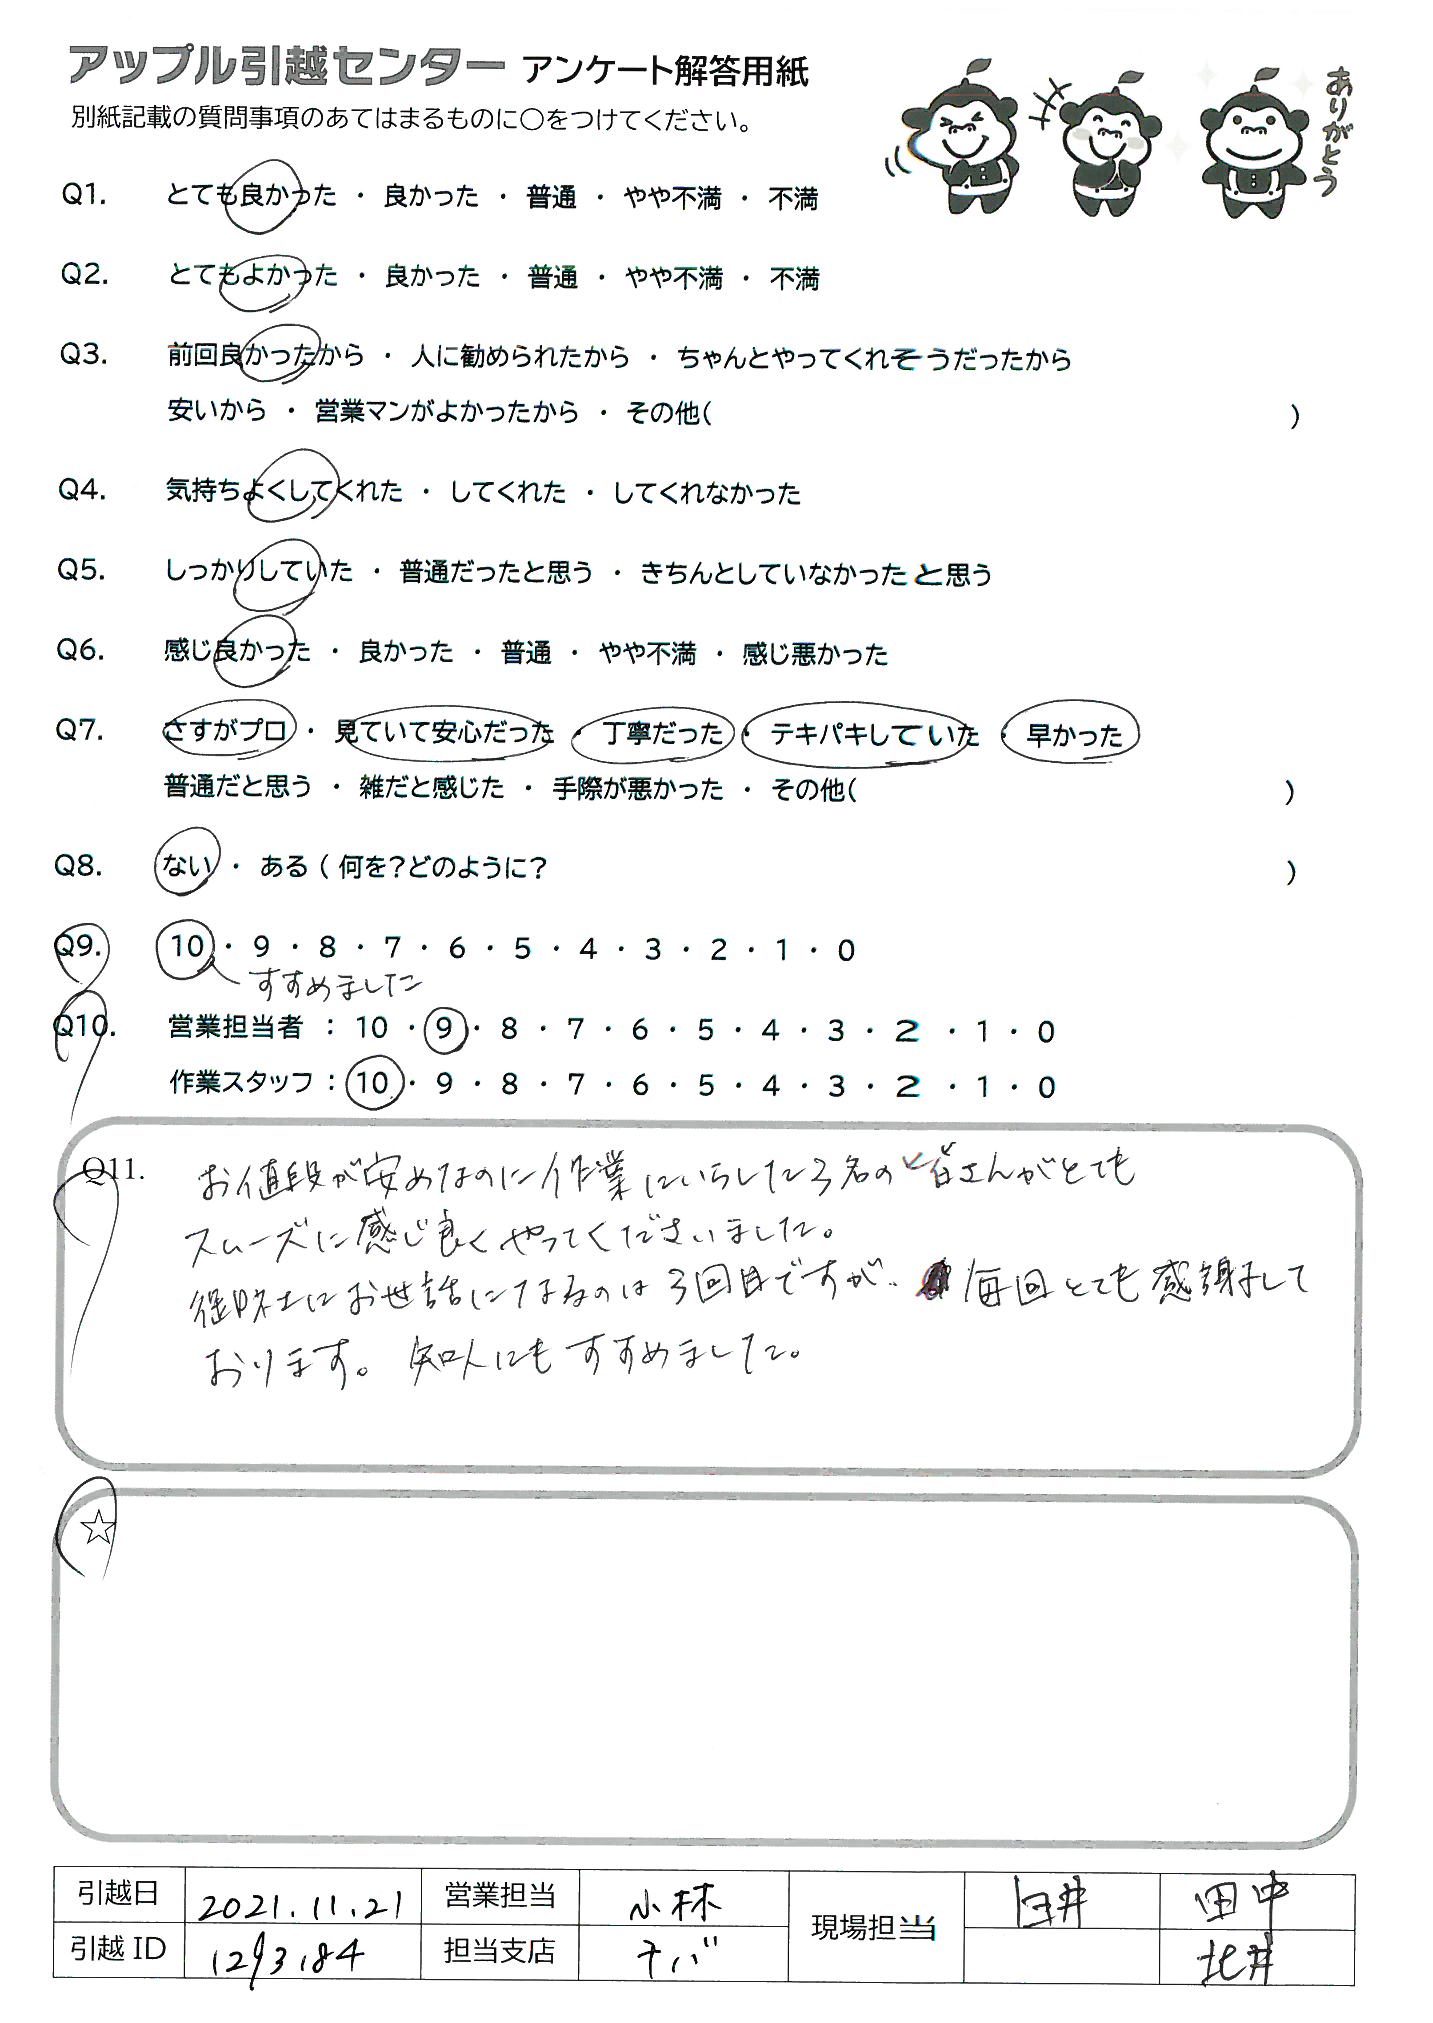 アップル引越センター アンケート解答用紙
別紙記載の質問事項のあてはまるものに○をつけてください。
ありがとう
Q1. とても良かった ・ 良かった ・ 普通 ・ やや不満 ・ 不満
Q2. とてもよかった ・ 良かった ・ 普通 ・ やや不満 ・ 不満
Q3. 前回良かったから ・ 人に勧められたから ・ ちゃんとやってくれそうだったから
安いから ・ 営業マンがよかったから ・ その他( )
Q4. 気持ちよくしてくれた ・ してくれた ・ してくれなかった
Q5. しっかりしていた ・ 普通だったと思う ・ きちんとしていなかったと思う
Q6. 感じ良かった ・ 良かった ・ 普通 ・ やや不満 ・ 感じ悪かった
Q7. さすがプロ ・ 見ていて安心だった ・ 丁寧だった ・ テキパキしていた ・ 早かった
普通だと思う ・ 雑だと感じた ・ 手際が悪かった ・ その他( )
Q8. ない ・ ある ( 何を?どのように? )
Q9. 10 ・ 9 ・ 8 ・ 7 ・ 6 ・ 5 ・ 4 ・ 3 ・ 2 ・ 1 ・ 0
すすめました
Q10. 営業担当者 : 10 ・ 9 ・ 8 ・ 7 ・ 6 ・ 5 ・ 4 ・ 3 ・ 2 ・ 1 ・ 0
作業スタッフ : 10 ・ 9 ・ 8 ・ 7 ・ 6 ・ 5 ・ 4 ・ 3 ・ 2 ・ 1 ・ 0
Q11. お値段が安めなのに作業にいらした3名の皆さんがとても
スムーズに感じ良くやってくださいました。
御社にお世話になるのは3回目ですが、毎回とても感謝して
おります。知人にもすすめました。
☆
引越日 2021.11.21 営業担当 小林 現場担当 臼井 田中
引越ID 担当支店 チバ 北井